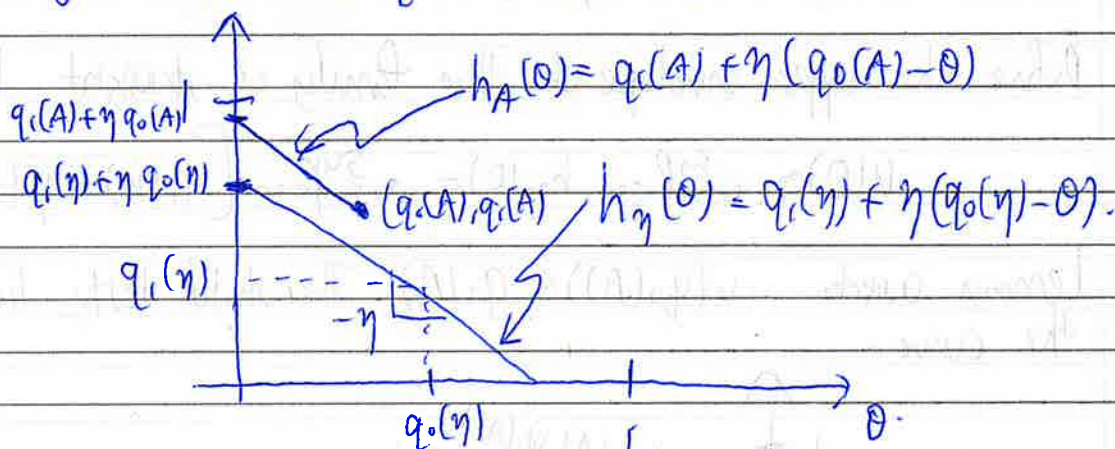 h_A(θ) = q₁(A) + η(q₀(A) − θ)
q₁(A) + η q₀(A)
q₁(η) + η q₀(η)
(q₀(A), q₁(A)
h_η(θ) = q₁(η) + η(q₀(η) − θ).
q₁(η)
−η
q₀(η)
1
θ.